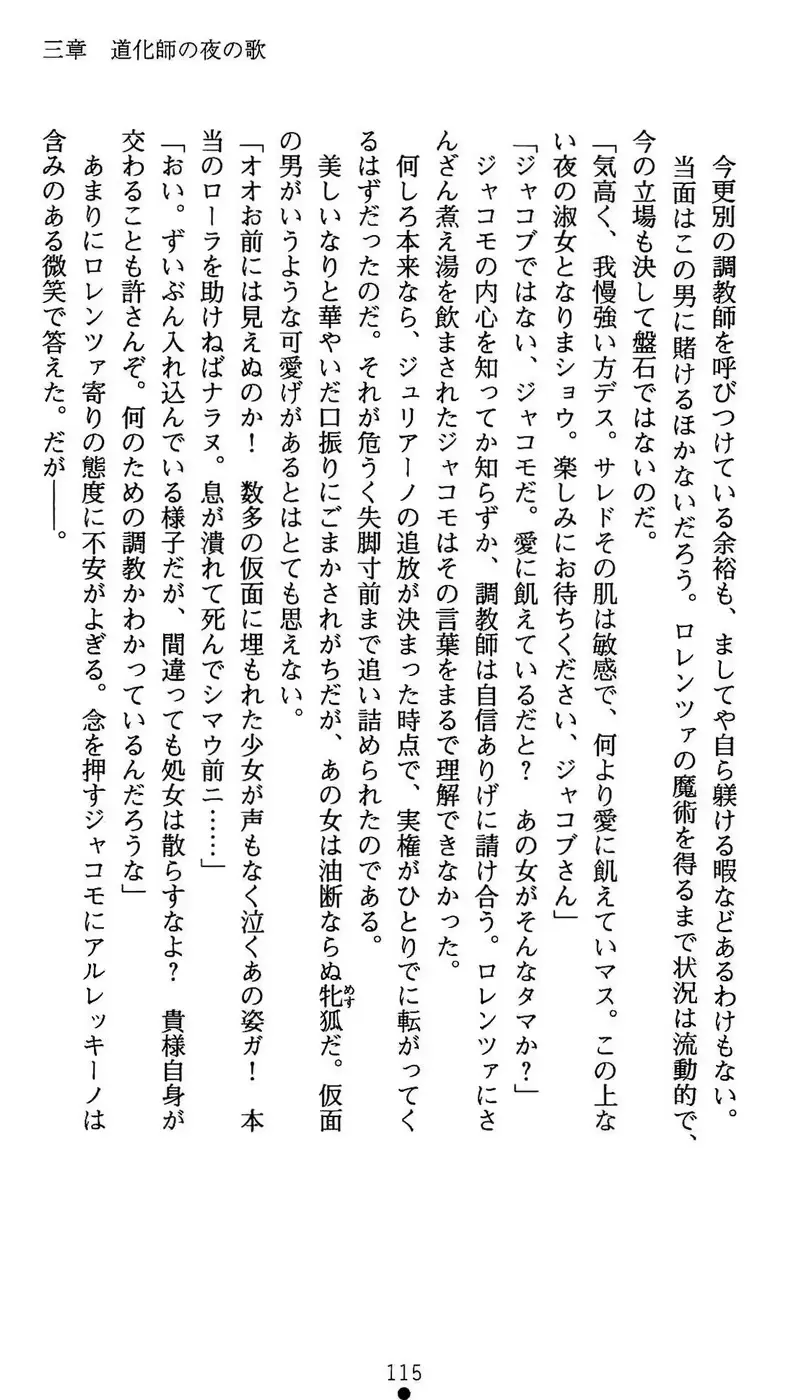 三章　道化師の夜の歌
　今更別の調教師を呼びつけている余裕も、ましてや自ら躾ける暇などあるわけもない。
　当面はこの男に賭けるほかないだろう。ロレンツァの魔術を得るまで状況は流動的で、
今の立場も決して盤石ではないのだ。
「気高く、我慢強い方デス。サレドその肌は敏感で、何より愛に飢えていマス。この上な
い夜の淑女となりまショウ。楽しみにお待ちください、ジャコブさん」
「ジャコブではない、ジャコモだ。愛に飢えているだと？　あの女がそんなタマか？」
　ジャコモの内心を知ってか知らずか、調教師は自信ありげに請け合う。ロレンツァにさ
んざん煮え湯を飲まされたジャコモはその言葉をまるで理解できなかった。
　何しろ本来なら、ジュリアーノの追放が決まった時点で、実権がひとりでに転がってく
るはずだったのだ。それが危うく失脚寸前まで追い詰められたのである。
　美しいなりと華やいだ口振りにごまかされがちだが、あの女は油断ならぬ牝狐だ。仮面
めす
の男がいうような可愛げがあるとはとても思えない。
「オオお前には見えぬのか！　数多の仮面に埋もれた少女が声もなく泣くあの姿ガ！　本
当のローラを助けねばナラヌ。息が潰れて死んでシマウ前ニ……」
「おい。ずいぶん入れ込んでいる様子だが、間違っても処女は散らすなよ？　貴様自身が
交わることも許さんぞ。何のための調教かわかっているんだろうな」
　あまりにロレンツァ寄りの態度に不安がよぎる。念を押すジャコモにアルレッキーノは
含みのある微笑で答えた。だが――。
115